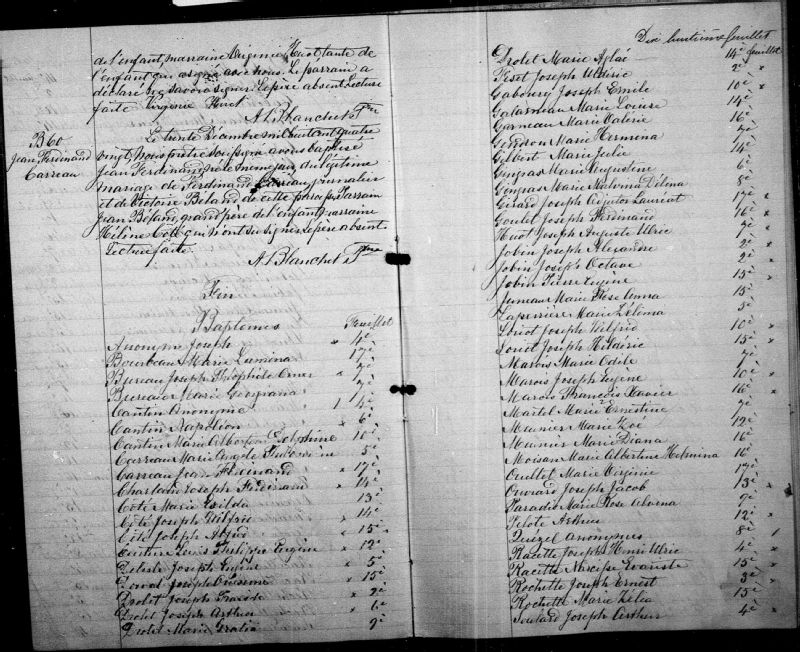 de l'enfant, marraine Virginie Huot tante de
l'enfant qui a signé avec nous. Le parrain a
déclaré ne savoir signer. Le père absent. Lecture
faite Virginie Huot
A. Blanchet Ptre
B60
Jean Ferdinand
Carreau
Le trente Décembre mil huit cent quatre
vingt, Nous prêtre soussigné avons baptisé
Jean Ferdinand, né le même jour, du légitime
mariage de Ferdinand Carreau journalier
et de Victoire Béland de cette paroisse. Parrain
Jean Béland, grand père de l'enfant, marraine
Hélène Côté, qui n'ont su signer. Le père absent.
Lecture faite.
A. Blanchet Ptre
Fin
Baptêmes Feuillet
Anonyme Joseph " 4e
Bourbeau Marie Lumina 17e
Bureau Joseph Théophile Omer " 7e
Bureau Marie Georgiana 7e
Cantin Anonyme 1 4e
Cantin Napoléon " 6e
Cantin Marie Delphine 16e
Carreau Marie 5e
Carreau Jean Ferdinand " 17e
Joseph Ferdinand " 14e
Côté Marie Exilda 13e
Côté Joseph Wilfrid " 14e
Côté Joseph " 15e
Louis Philippe Eugène " 12e
Delisle Joseph Eugène " 5e
Joseph Onésime " 15e
Drolet Joseph " 9e
Drolet Joseph Arthur " 6e
Drolet Marie Gratia 9e
Dix huitième feuillet
Drolet Marie Aglaé 14e feuillet
Fiset Joseph Ulderic 2e "
Gaboury Joseph Emile 10e "
Galarneau Marie Louise 14e
Garneau Marie Valérie 16e
Marie Hermina 7e
Gilbert Marie Julie 14e
Gingras Marie Augustine 6e
Gingras Marie Malvina Délima 8e
Girard Joseph Adjutor Lauréat 17e "
Goulet Joseph Ferdinand 16e "
Huot Joseph Auguste Ulric 7e "
Jobin Joseph Alexandre 2e "
Jobin Joseph Octave 2e "
Jobin Pierre Eugène 15e "
Juneau Marie Rose Anna 15e
Laperrière Marie Zélima 5e
Loriot Joseph Wilfrid 10e "
Loriot Joseph Ulderic 15e "
Marois Marie Odile 7e
Marois Joseph Eugène 10e "
Marois François Xavier 16e "
Martel Marie Ernestine 7e
Meunier Marie Zoé 12e
Meunier Marie Diana 16e
Moisan Marie Albertine Hermina 16e
Ouellet Marie Virginie 17e
Ouvrard Joseph Jacob 13e "
Paradis Marie Rose Alvena 9e
Pelote Arthur 12e "
Anonymes 8e 1
Racette Joseph Henri Ulric 4e "
Racette Narcisse Evariste 15e "
Rochette Joseph Ernest 3e "
Rochette Marie Zélia 15e
Soulard Joseph Arthur 4e "